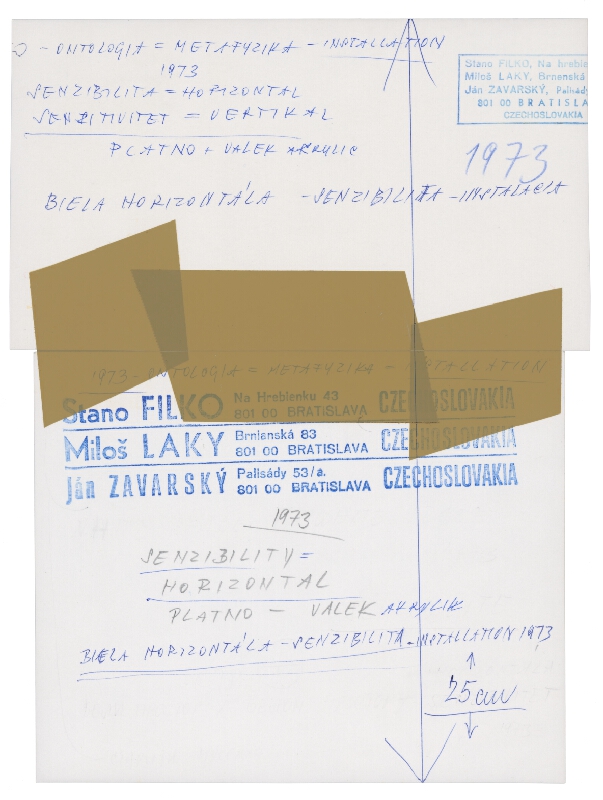 - ONTOLOGIA = METAFYZIKA - INSTALLATION
1973
SENZIBILITA = HORIZONTAL
SENZITIVITET = VERTIKAL
PLATNO + VALEK AKRYLIC
Stano FILKO, Na Hreblen
Miloš LAKY, Brnenská
Ján ZAVARSKÝ, Palisády
801 00 BRATISLA
CZECHOSLOVAKIA
1973
BIELA HORIZONTÁLA - SENZIBILITA - INSTALÁCIA
1973 - ONTOLOGIA = METAFYZIKA - INSTALLATION
Stano FILKO Na Hreblenku 43 801 00 BRATISLAVA CZECHOSLOVAKIA
Miloš LAKY Brnianská 83 801 00 BRATISLAVA CZECHOSLOVAKIA
Ján ZAVARSKÝ Palisády 53/a. 801 00 BRATISLAVA CZECHOSLOVAKIA
1973
SENZIBILITY =
HORIZONTAL
PLATNO - VALEK AKRYLIK
BIELA HORIZONTÁLA - SENZIBILITA - INSTALLATION 1973
25 cm